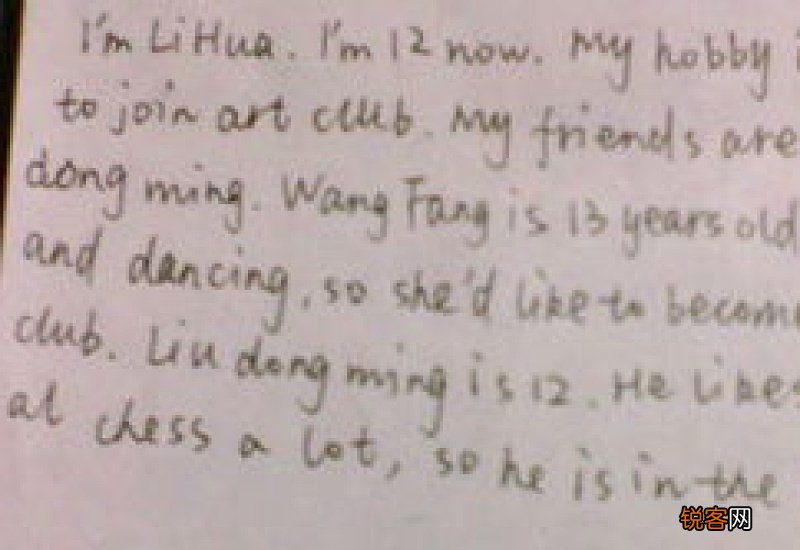 I'm Li Hua. I'm 12 now. My hobby
to join art club. My friends are
dong ming. Wang Fang is 13 years old
and dancing, so she'd like to become
club. Liu dong ming is 12. He likes
at chess a lot, so he is in the
锐客网